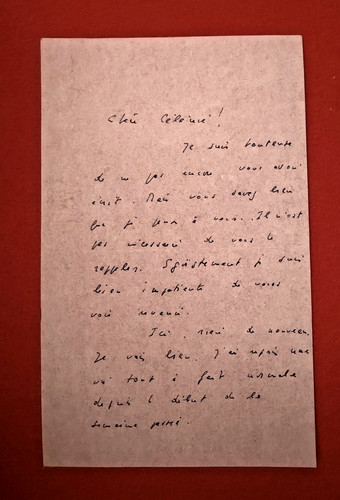 Chère Célénie!
Je suis honteuse
de ne pas encore vous avoir
écrit. Mais vous savez bien
que je pense à vous. Il n'est
pas nécessaire de vous le
rappeler. Egoïstement je suis
bien impatiente de vous
voir revenir.
Ici, rien de nouveau.
Je vais bien. J'ai repris une
vie tout à fait normale
depuis le début de la
semaine passée.